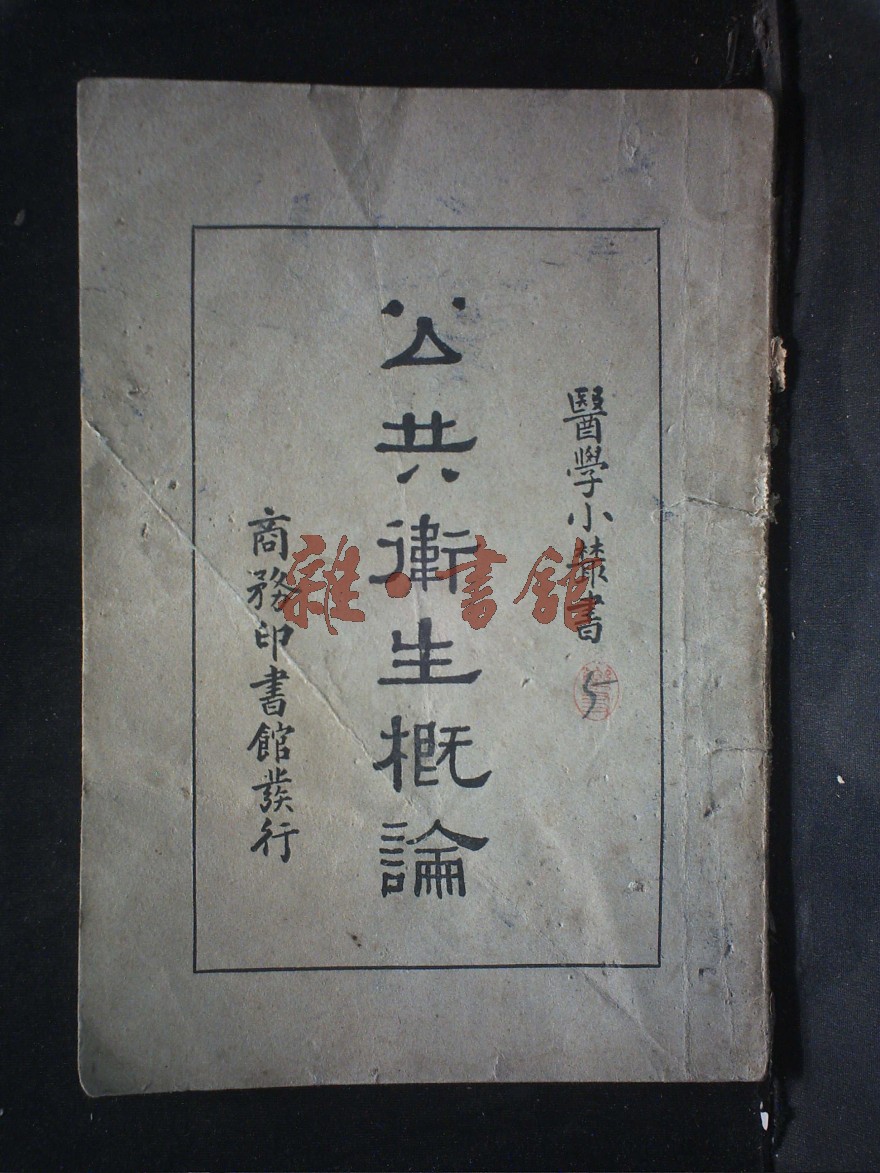 醫學小叢書
公共衛生概論
商務印書館發行
雜·書館